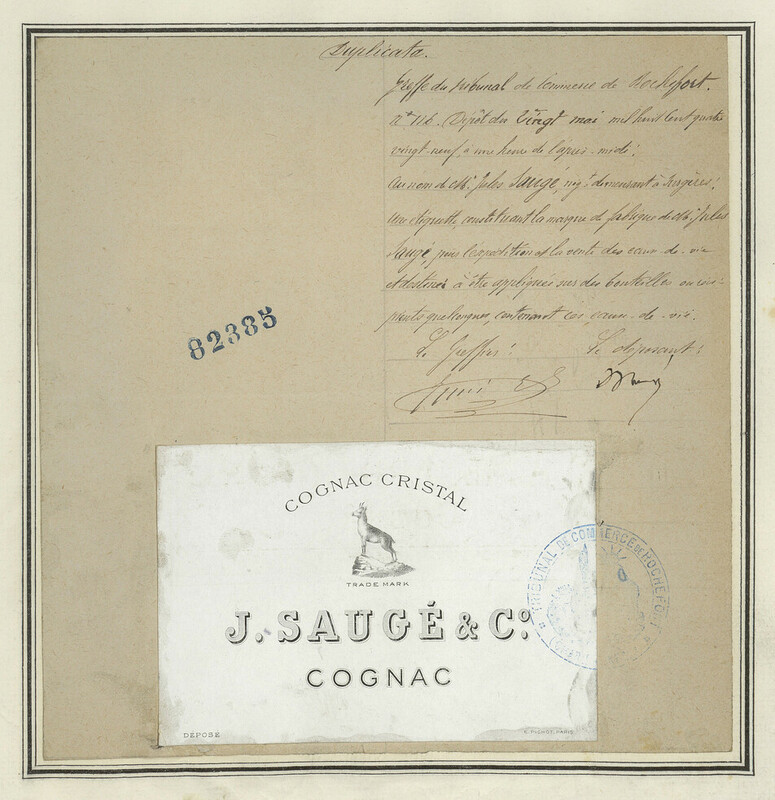 Duplicata.
Greffe du tribunal de Commerce de Rochefort.
n° 116. Dépôt du Vingt mai mil huit cent quatre
vingt-neuf, à une heure de l'après-midi.
Au nom de Mr. Jules Saugé, nég.t demeurant à Surgères.
Une étiquette, constituant la marque de fabrique de Mr. Jules
Saugé, pour l'expédition et la vente des eaux-de-vie
et destinée à être appliquée sur des bouteilles ou réci-
pients quelconques, contenant ces eaux-de-vie.
Le Greffier: Le déposant:
82385
COGNAC CRISTAL
TRADE MARK
J. SAUGÉ & Co.
COGNAC
DÉPOSÉ
PARIS
TRIBUNAL DE COMMERCE DE ROCHEFORT